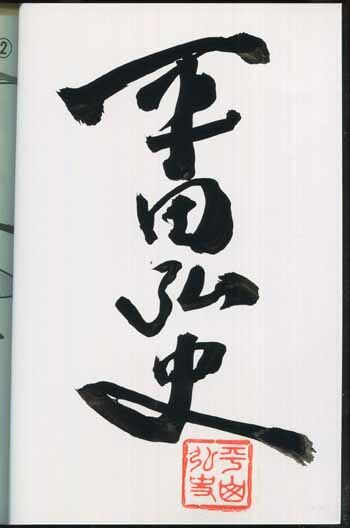 ②
平田弘史
平田
弘史